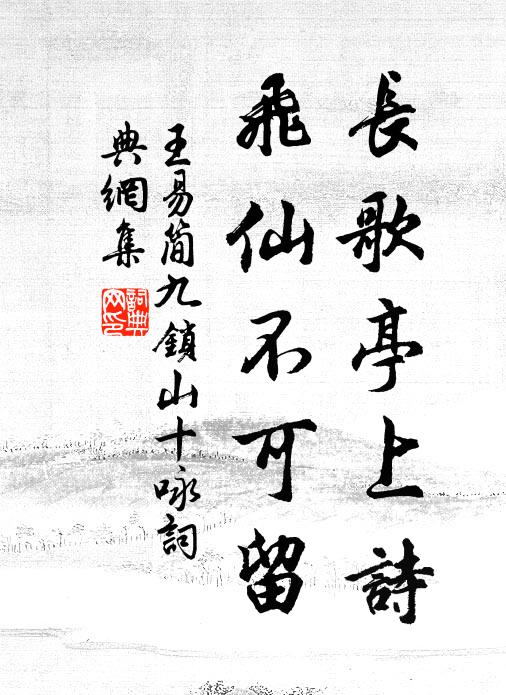 長歌亭上詩
飛仙不可留
王易簡九鎖山十咏詞
典網集
詞典
网印